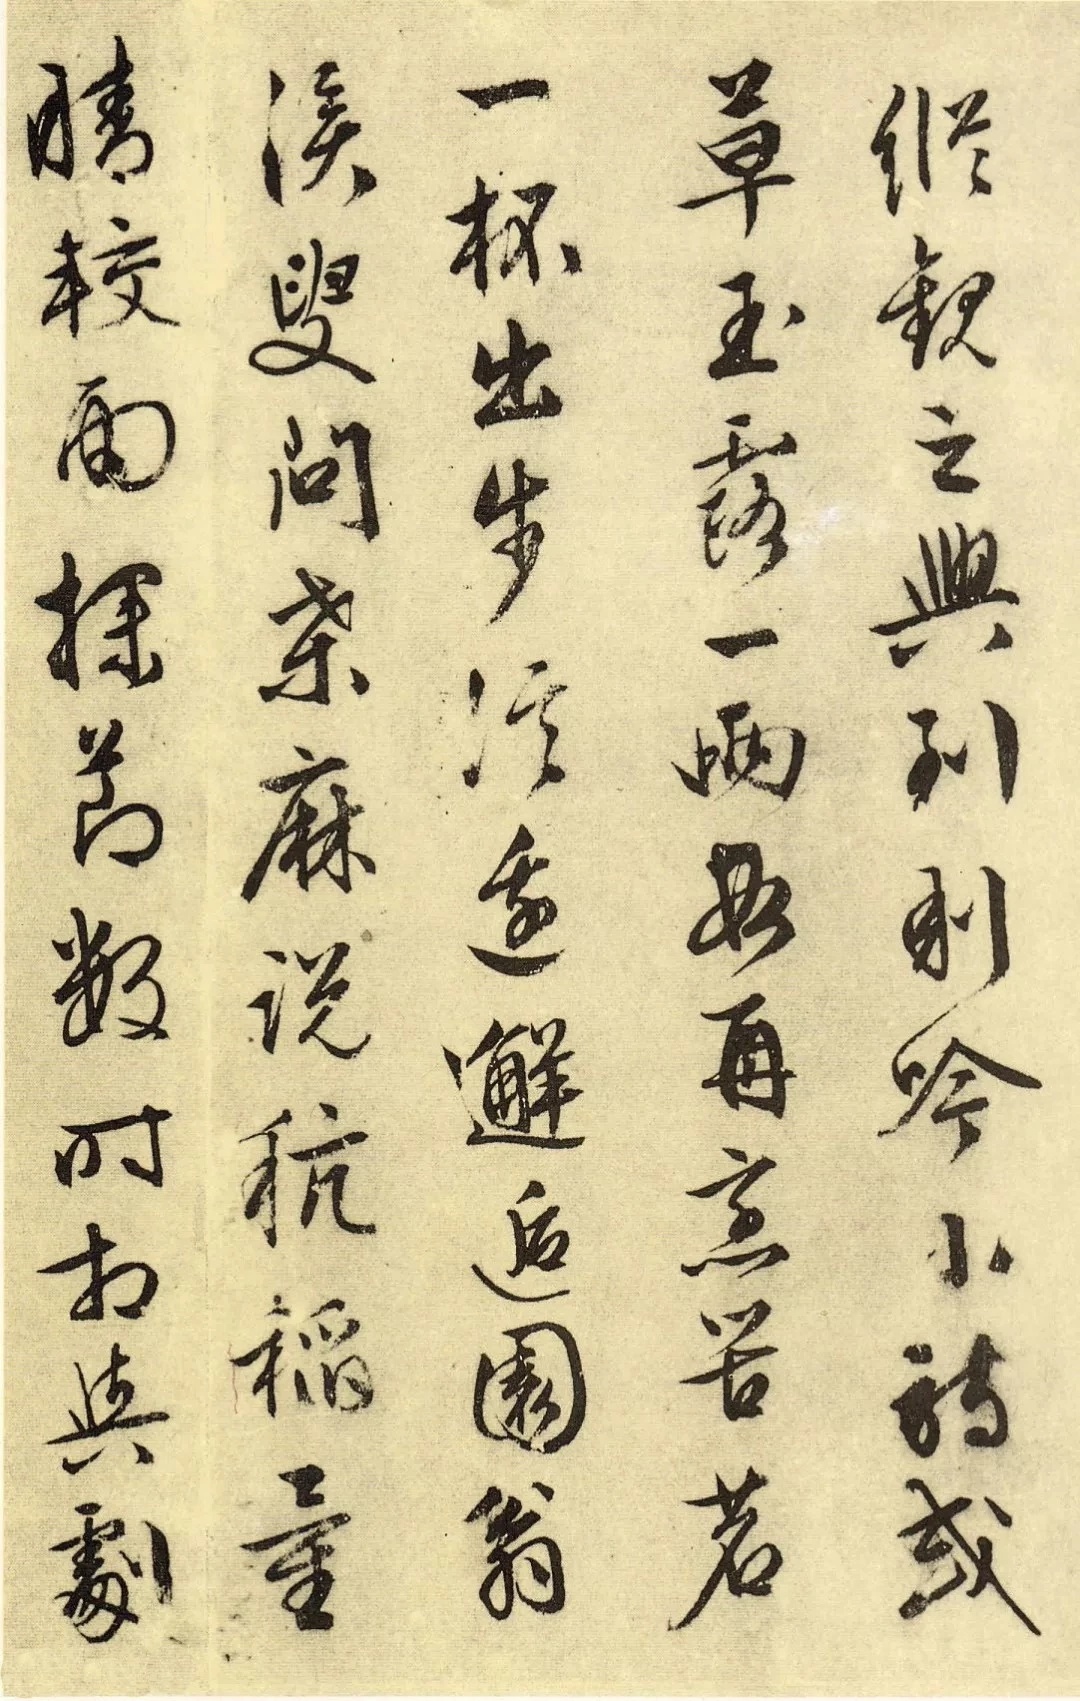 縱觀之興到則吟小詩或
草玉露一兩段再烹苦茗
一杯出步溪邊邂逅園翁
溪叟問桑麻説秔稻量
晴較雨探節數時相與劇